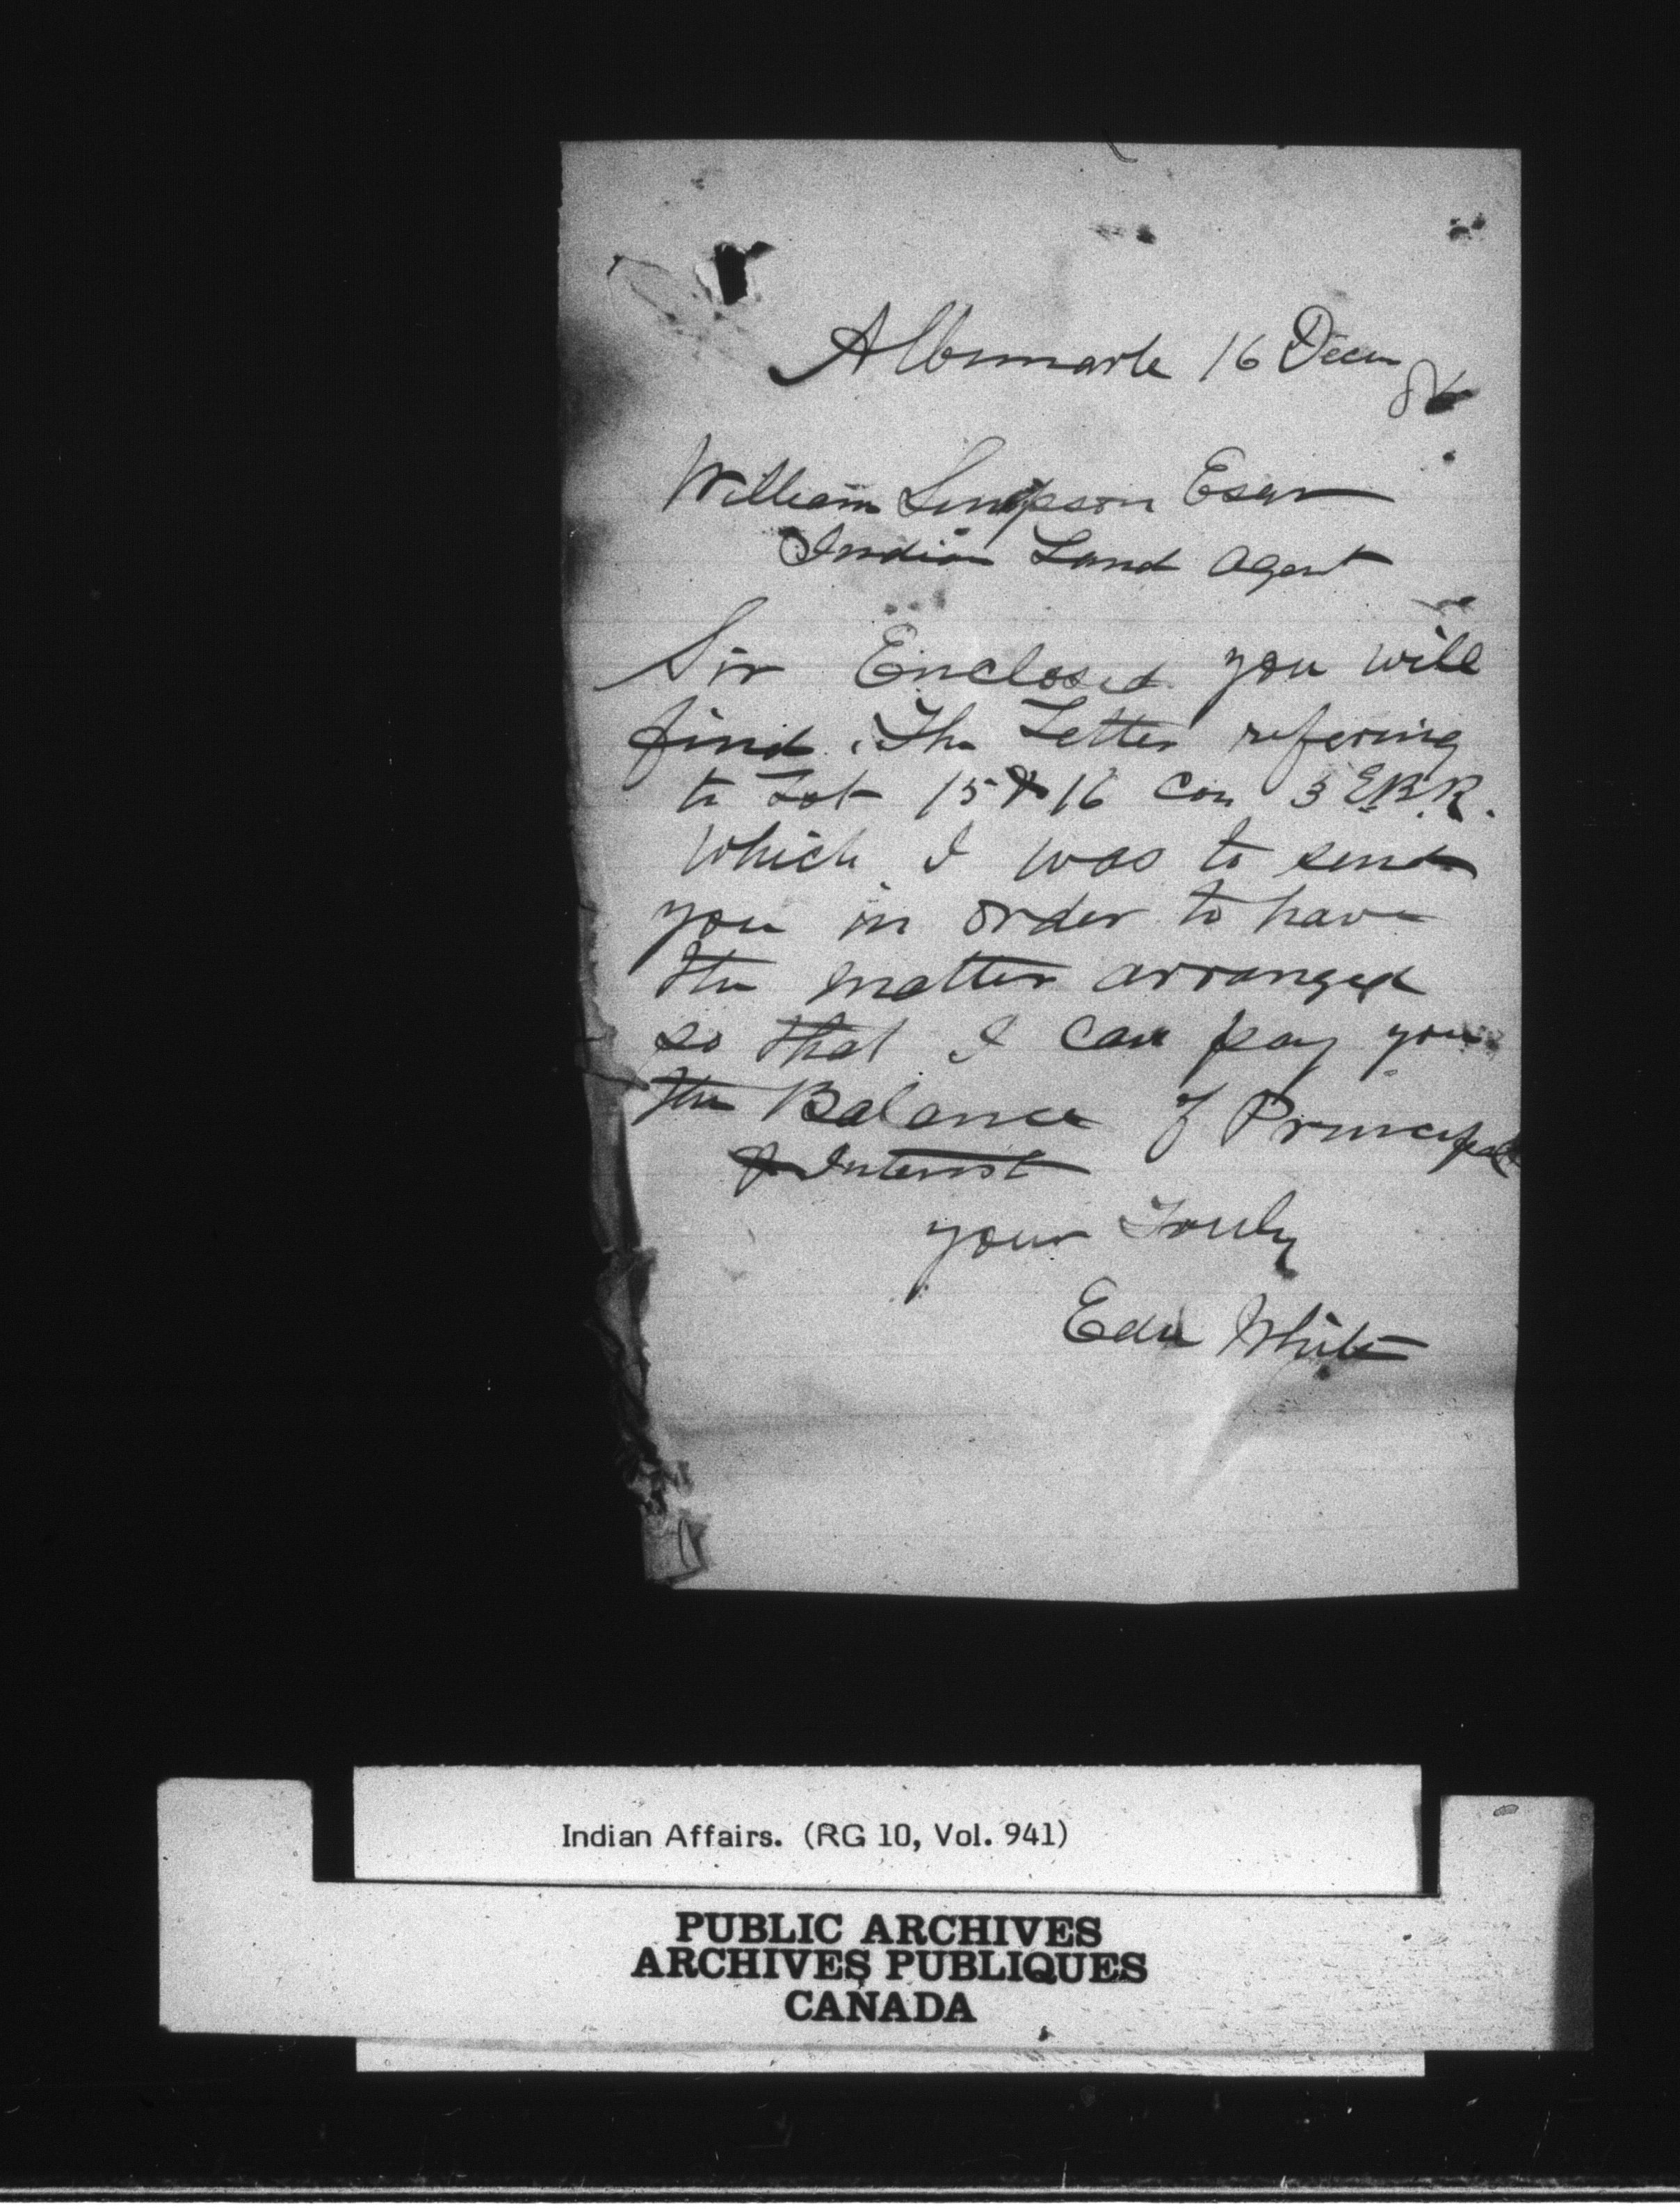 Albemarle 16 Decem
86
William Simpson Esqr
Indian Land Agent
Sir Enclosed you will
find The Letter refering
to Lot 15 & 16 Con 3 E.B.R.
Which I was to send
you in order to have
the matter arranged
so that I can pay you
the Balance of Principal
& Interest
your Truly
Edw White
Indian Affairs. (RG 10, Vol. 941)
PUBLIC ARCHIVES
ARCHIVES PUBLIQUES
CANADA